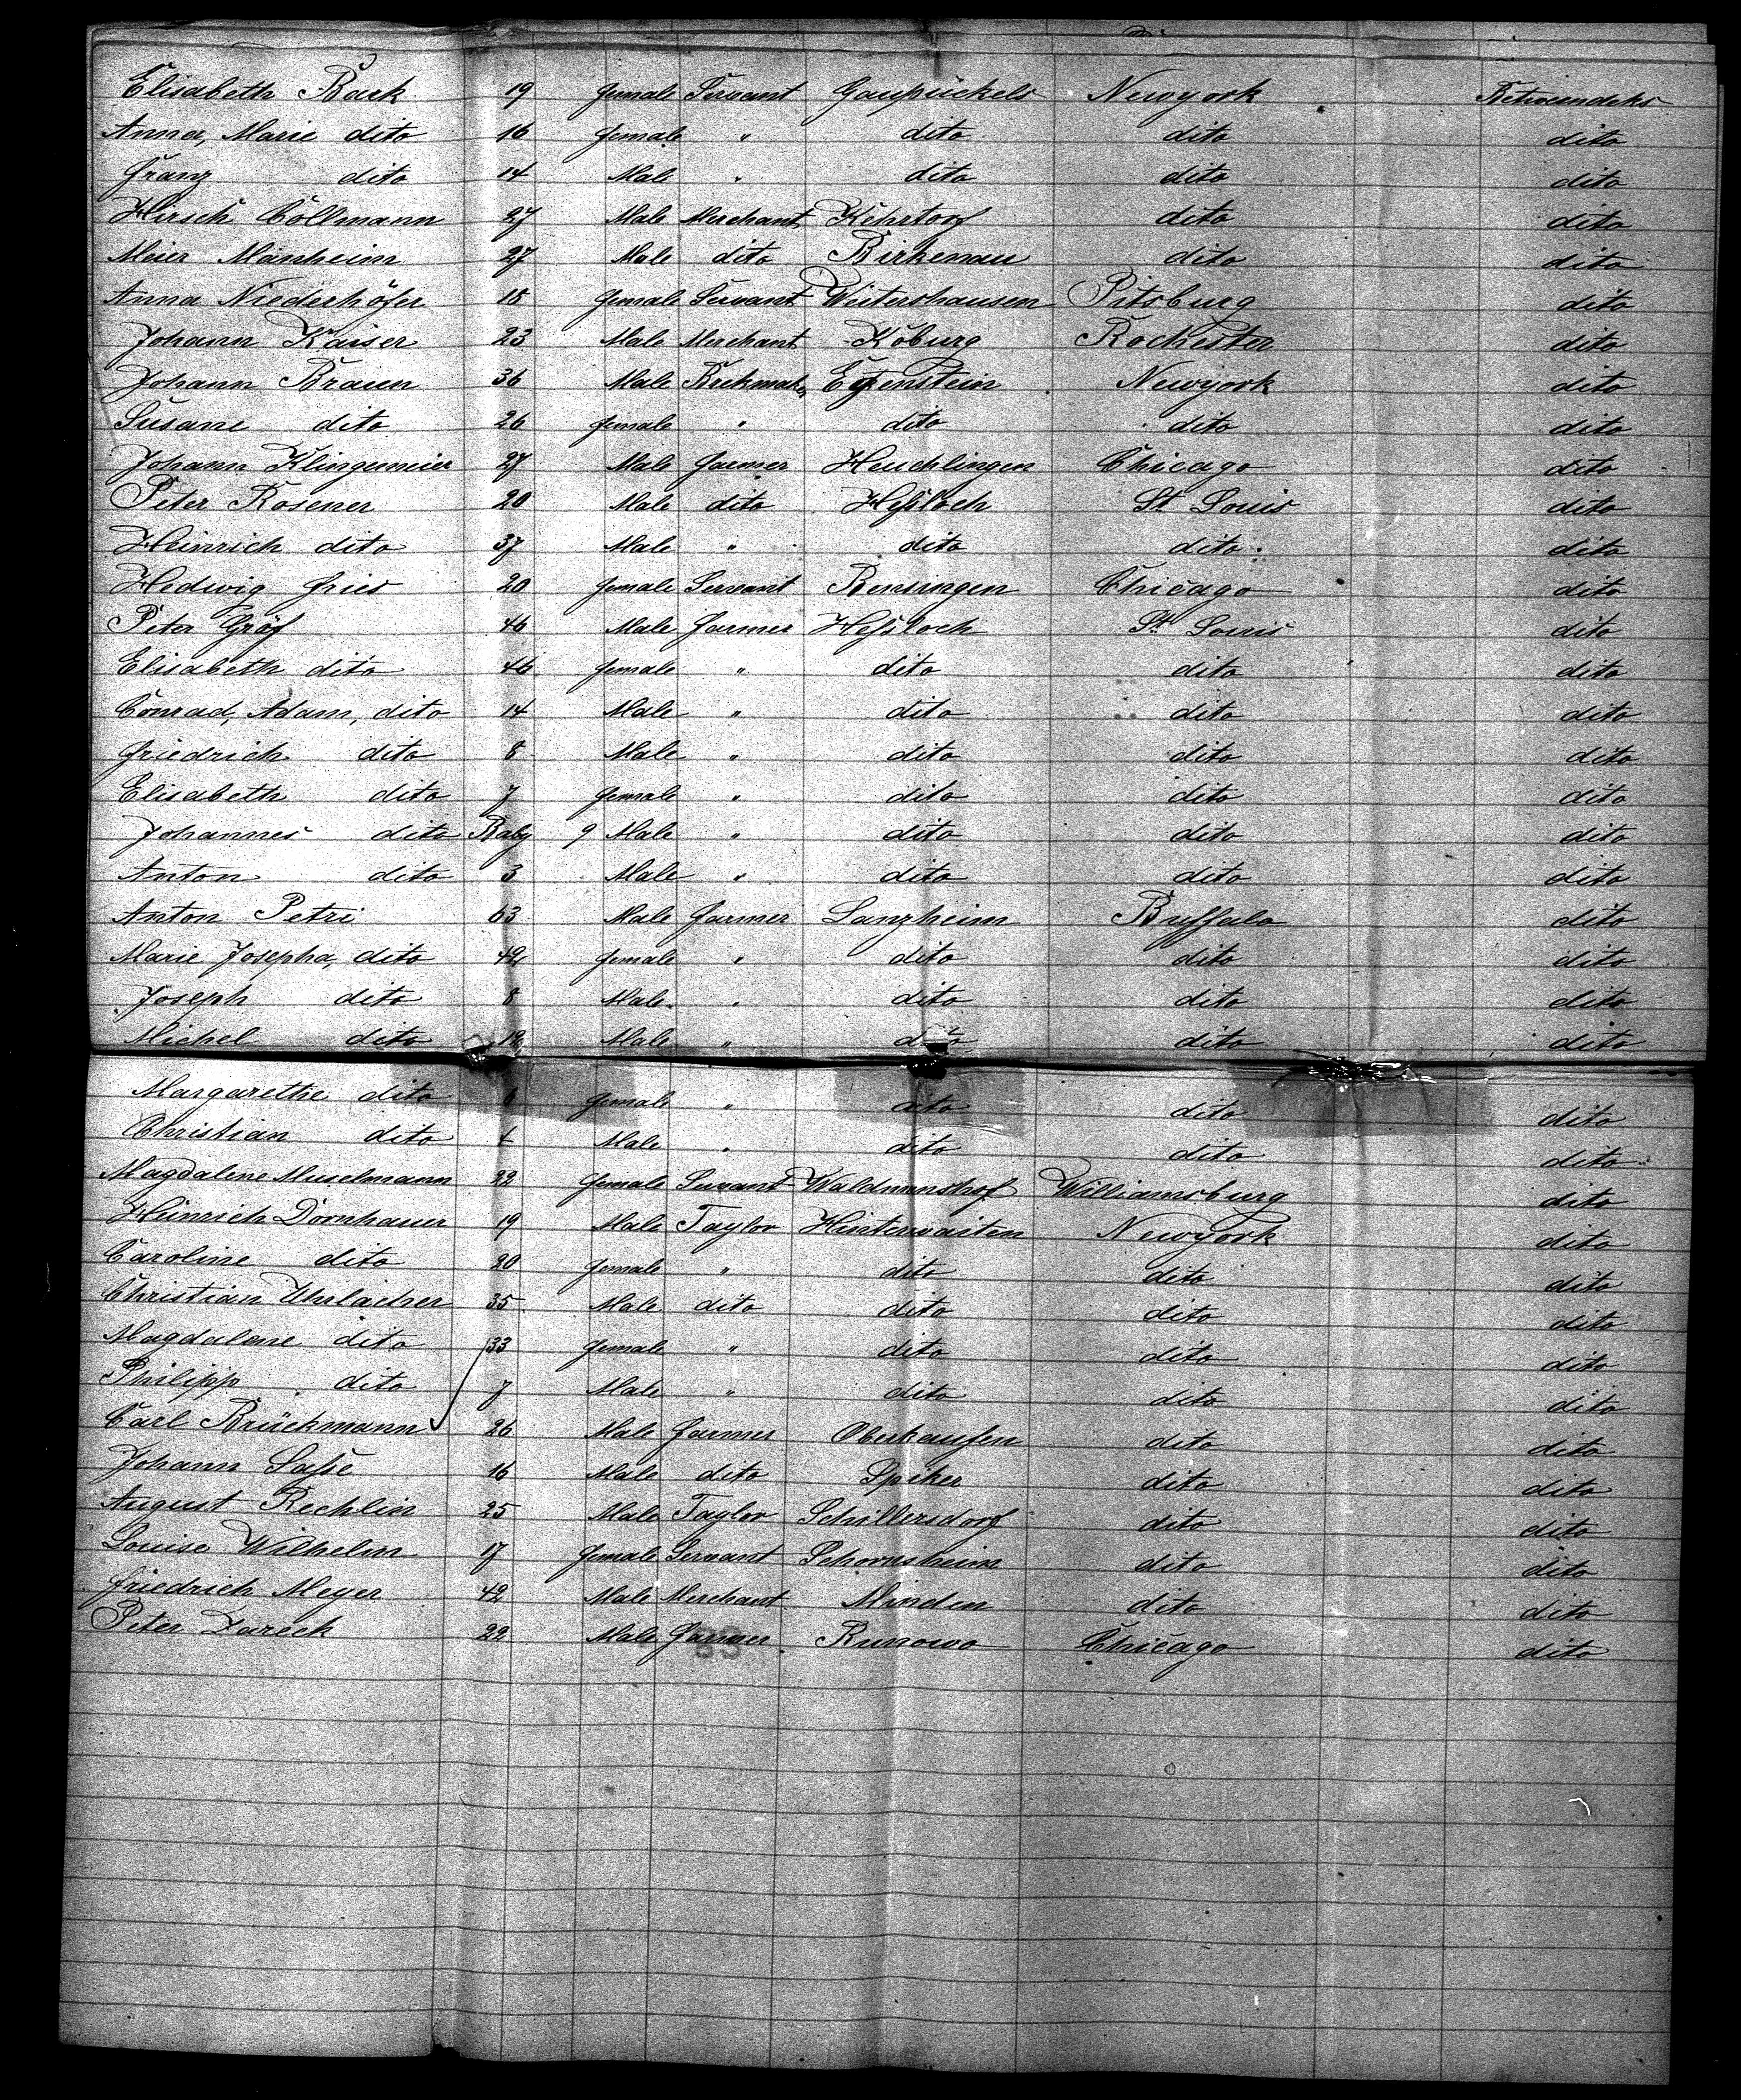 Elisabeth Back 19 female Servant Gaupückels Newyork Betweendeks
Anna, Marie dito 16 female " dito dito dito
Franz dito 14 Male " dito dito dito
Hirsch Cöllmann 27 Male Merchant Kehrtorf dito dito
Meier Manheim 27 Male dito Birkenau dito dito
Anna Niederhöfer 18 female Servant Weitershausen Pitsburg dito
Johann Kaiser 23 Male Merchant Koburg Rochester dito
Johann Braun 36 Male Eggenstein Newyork dito
Susane dito 26 female " dito dito dito
Johann Klingemeier 27 Male farmer Heuchlingen Chicago dito
Peter Rosener 20 Male dito Heßloch St Louis dito
Heinrich dito 37 Male " dito dito dito
Hedwig Fries 20 female Servant Bensingen Chicago dito
Peter Gräf 46 Male farmer Heßloch St Louis dito
Elisabeth dito 46 female " dito dito dito
Conrad, Adam, dito 14 Male " dito dito dito
Friedrich dito 8 Male " dito dito dito
Elisabeth dito 7 female " dito dito dito
Johannes dito Baby 9 Male " dito dito dito
Anton dito 3 Male " dito dito dito
Anton Petri 63 Male farmer Lanzheim Buffalo dito
Marie Josepha, dito 42 female " dito dito dito
Joseph dito 8 Male " dito dito dito
Michel dito 12 Male " dito dito dito
Margarethe dito 6 female " dito dito dito
Christian dito 4 Male " dito dito dito
Magdalene Muselmann 22 female Servant Waldmannshof Williamsburg dito
Heinrich Dornhauer 19 Male Taylor Hinterwaiten Newyork dito
Caroline dito 20 female " dito dito dito
Christian Uhrlacher 35 Male dito dito dito dito
Magdalene dito 33 female " dito dito dito
Philipp dito 7 Male " dito dito dito
Carl Brückmann 26 Male farmer Oberhausen dito dito
Johann Saße 16 Male dito Spiker dito dito
August Rechlin 25 Male Taylor Schillersdorf dito dito
Louise Wilhelm 17 female Servant Schornsheim dito dito
Friedrich Meyer 42 Male Merchant Minden dito dito
Peter Zareck 22 Male farmer Runowo Chicago dito